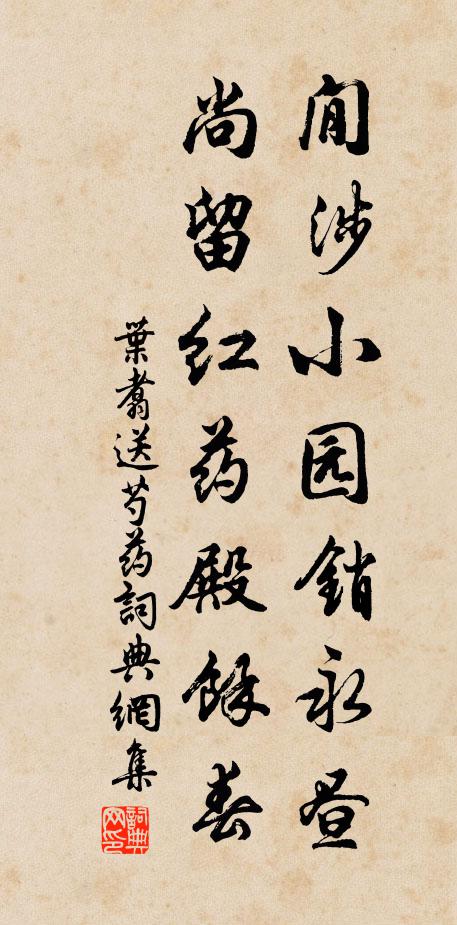 闲涉小园销永昼
尚留红药殿余春
葉翥送芍药詞典網集
詞典网印